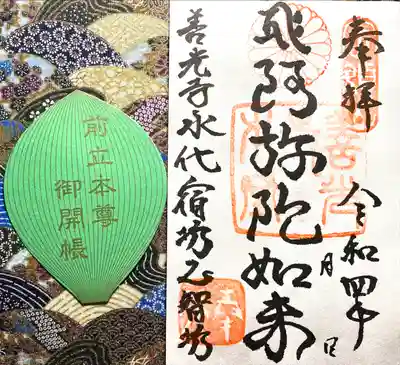 奉拝
令和四年　月　日
阿弥陀如来
善光寺永代宿坊正智坊
前立本尊
御開帳